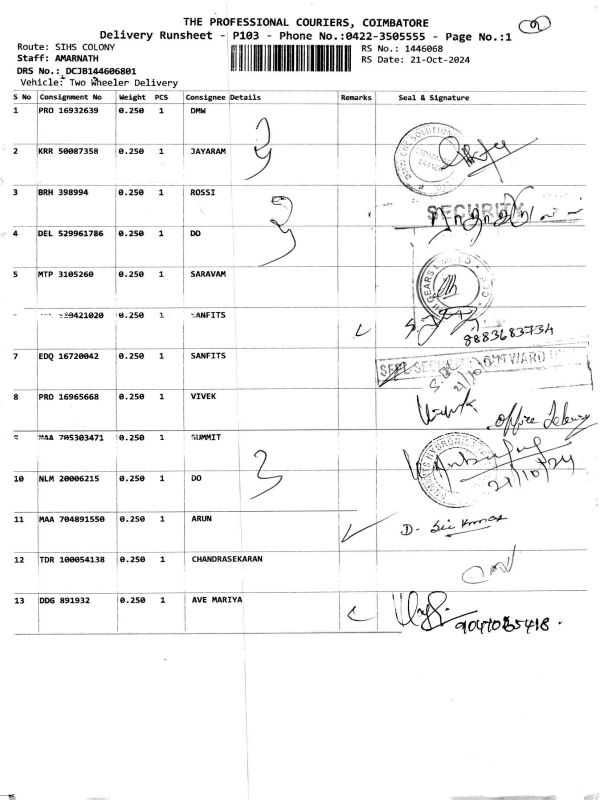 THE PROFESSIONAL COURIERS, COIMBATORE
Delivery Runsheet - P103 - Phone No.:0422-3505555 - Page No.:1
Route: SIHS COLONY
RS No.: 1446068
Staff: AMARNATH
RS Date: 21-Oct-2024
DRS No.: DCJB144606801
Vehicle: Two Wheeler Delivery
S No Consignment No Weight PCS Consignee Details Remarks Seal & Signature
1 PRO 16932639 0.250 1 DMW
2 KRR 50087358 0.250 1 JAYARAM
3 BRH 398994 0.250 1 ROSSI
SECURITY
4 DEL 529961786 0.250 1 DO
5 MTP 3105260 0.250 1 SARAVAM
30421020 0.250 1 SANFITS
8883683734
7 EDQ 16720042 0.250 1 SANFITS
OUTWARD
8 PRO 16965668 0.250 1 VIVEK
office
9 MAA 705303471 0.250 1 SUMMIT
21/10/24
10 NLM 20006215 0.250 1 DO
11 MAA 704891550 0.250 1 ARUN
12 TDR 100054138 0.250 1 CHANDRASEKARAN
13 DDG 891932 0.250 1 AVE MARIYA